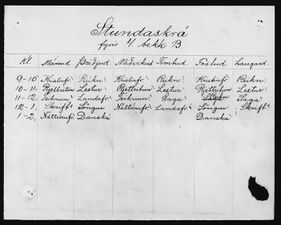 Stundaskrá
fyrir 4. bekk B.
Kl. Mánud. Þriðjud. Miðvikud. Fimtud. Föstud. Laugard.
9-10 Kristinfr. Reikn. Kristinfr. Reikn. Kristinfr. Reikn.
10-11. Rjettritun Lestur Rjettritun Lestur Rjettritun Lestur
11-12. Teiknun Landafr. Teiknun Saga Saga
12-1. Skrift Söngur Náttúrufr. Landafr. Söngur Skrift
1-2. Náttúrufr. Danska Danska